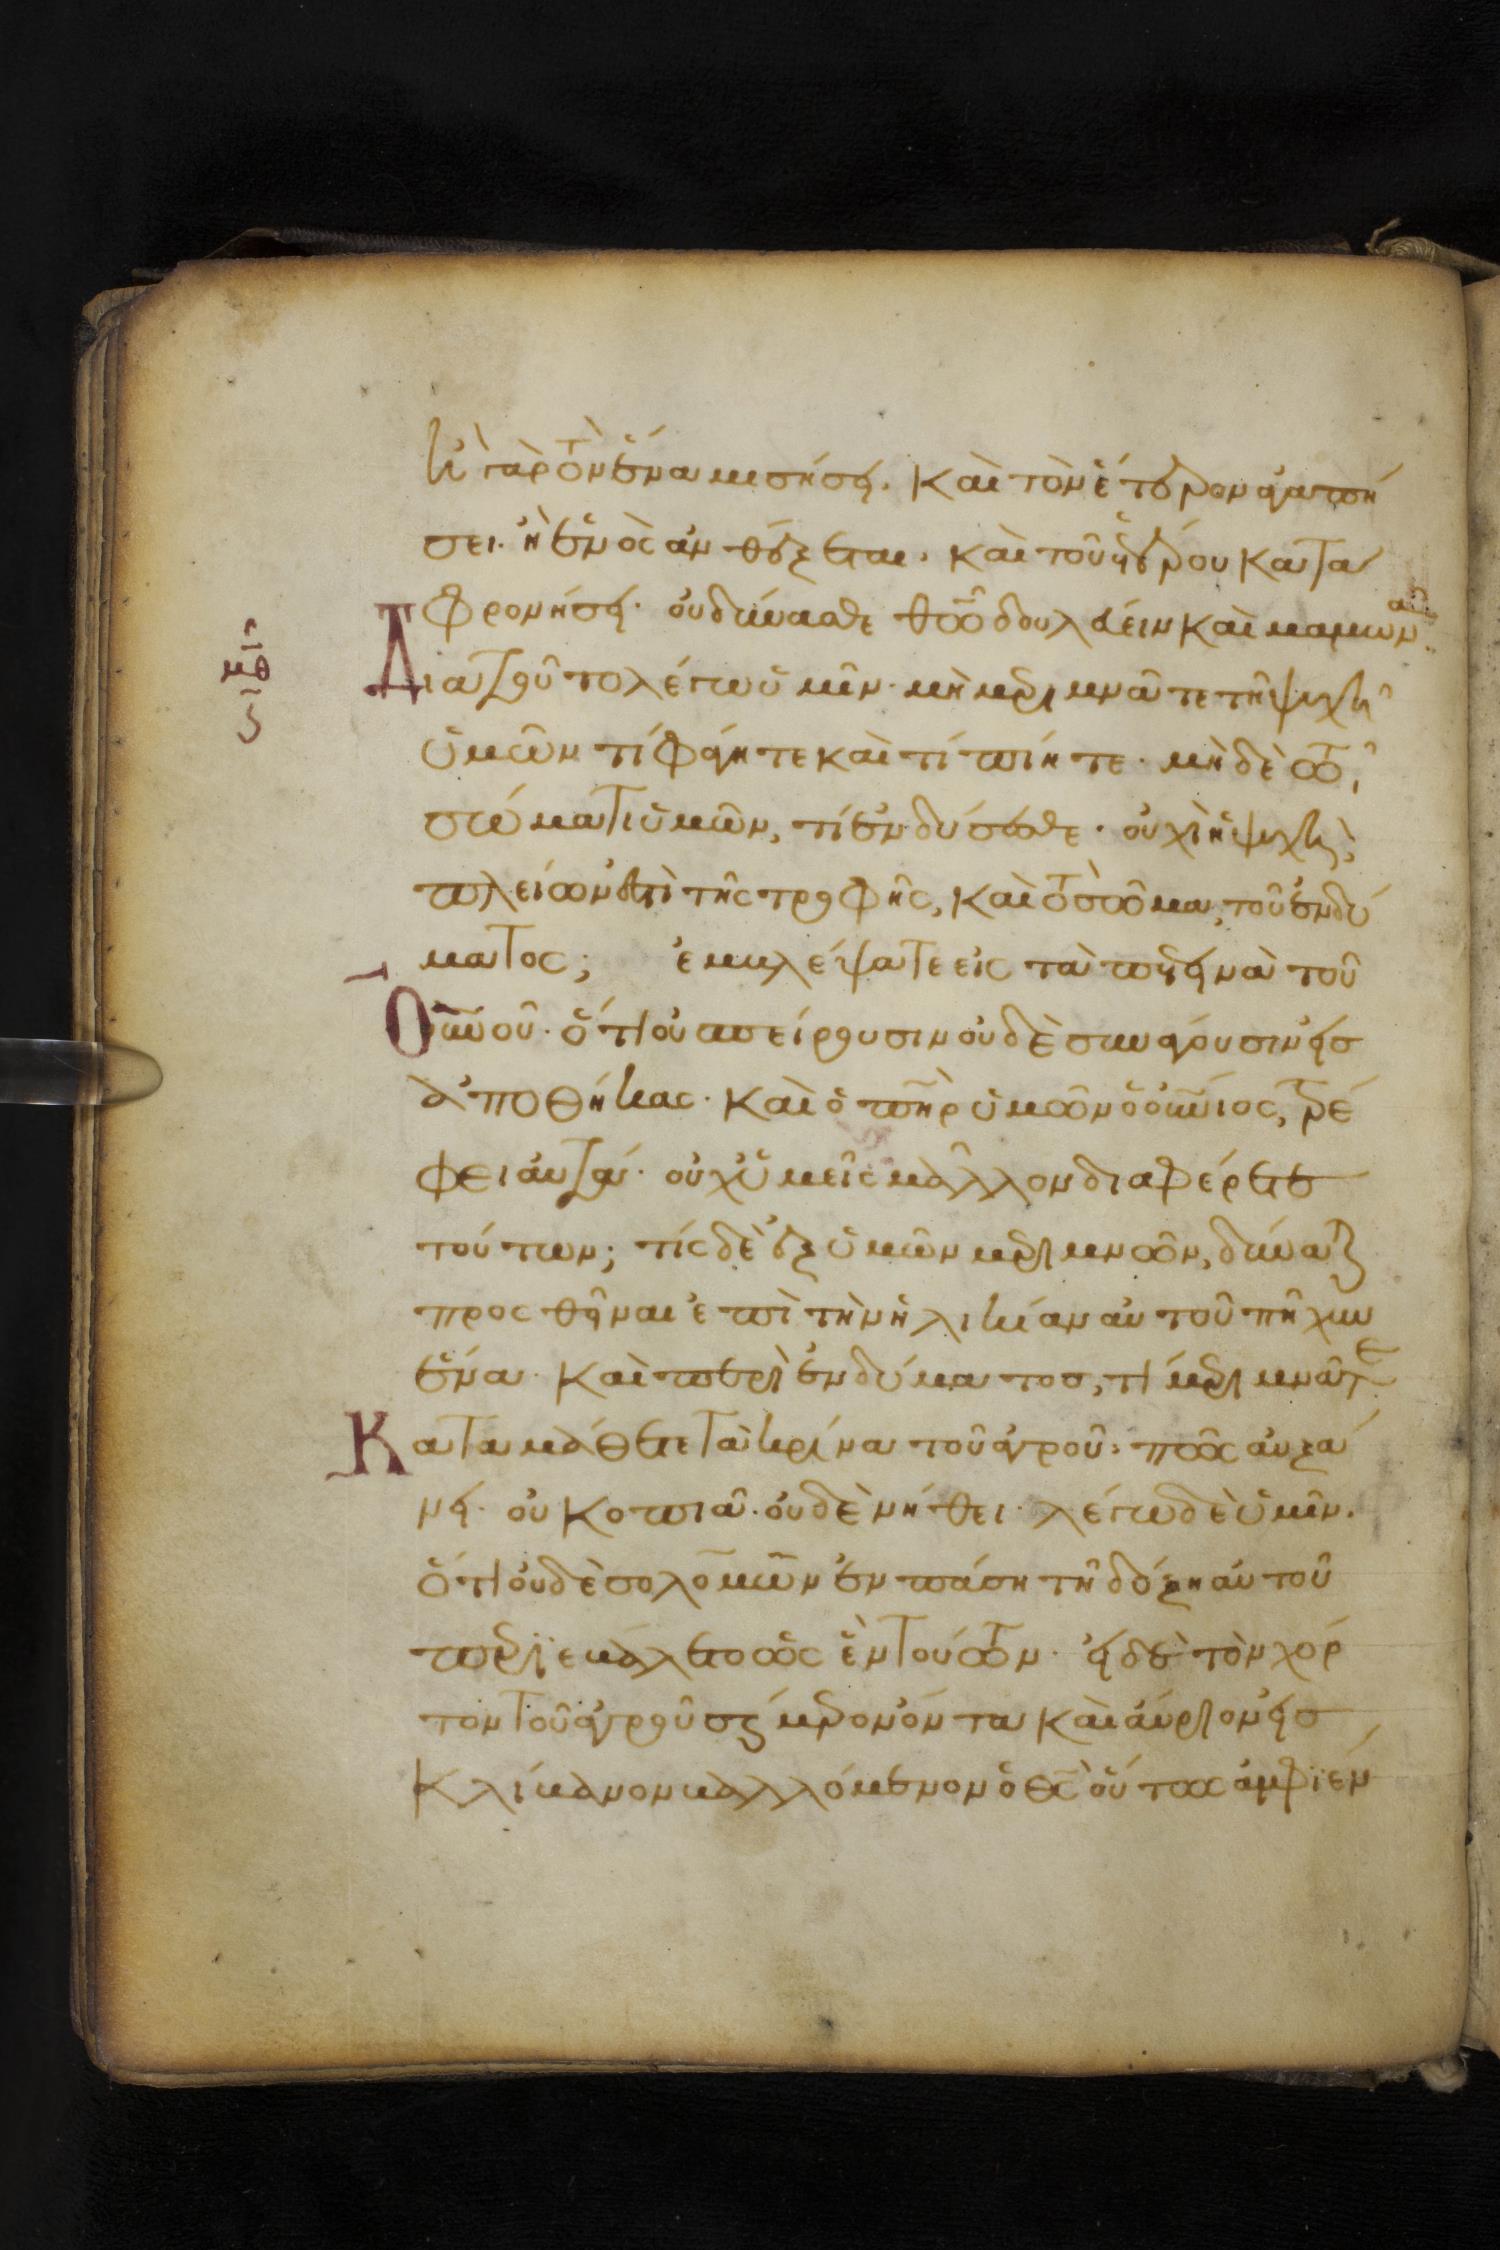 ἢ γὰρ τὸν ἕνα μισήσει. καὶ τὸν ἕτερον ἀγαπή
σει. ἢ ἑνὸς ἀνθέξεται. καὶ τοῦ ἑτέρου κατα
φρονήσει. οὐ δύνασθε θῶ δουλεύειν καὶ μαμωνᾶ.
μθ
ς
Διατοῦτο λέγω ὑμῖν. μὴ μεριμνᾶτε τῆ ψυχῆ
ὑμῶν τί φάγητε καὶ τί πίητε. μὴ δὲ τῶ
σώματι ὑμῶν, τί ἐνδύσησθε. οὐχὶ ἡ ψυχὴ,
πλείων ἐστὶ τῆς τροφῆς, καὶ τὸ σῶμα, τοῦ ἐνδύ
ματος; ἐμβλέψατε εἰς τὰ πετεινὰ τοῦ
Οὐνοῦ. ὅτι οὐ σπείρουσιν οὐδὲ συνάγουσιν εἰσ
ἀποθήκας. καὶ ὁ πηρ ὑμῶν ὁ οὐνιος, τρέ
φει αὐτά. οὐχ ὑμεῖς μᾶλλον διαφέρετε
τούτων; τίς δὲ ἐξ ὑμῶν μεριμνῶν, δύναται
προσθῆναι ἐπὶ τὴν ἡλικίαν αὐτοῦ πῆχυν
ἕνα. καὶ περὶ ἐνδύματοσ, τί μεριμνᾶτε
Καταμάθετε τὰ κρίνα τοῦ ἀγροῦ. πῶς αὐξά
νει. οὐ κοπιᾶ. οὐδὲ νήθει. λέγω δὲ ὑμῖν.
ὅτι οὐδὲ σολομῶν ἐν πάση τῆ δόξη αὐτοῦ
περιεβάλετο ὡς ἓν τούτων. εἰ δὲ τὸν χόρ
τον τοῦ ἀγροῦ σήμερον ὄντα καὶ αὔριον εἰσ
κλίβανον βαλλόμενον ὁ θς οὕτως ἀμφιέν